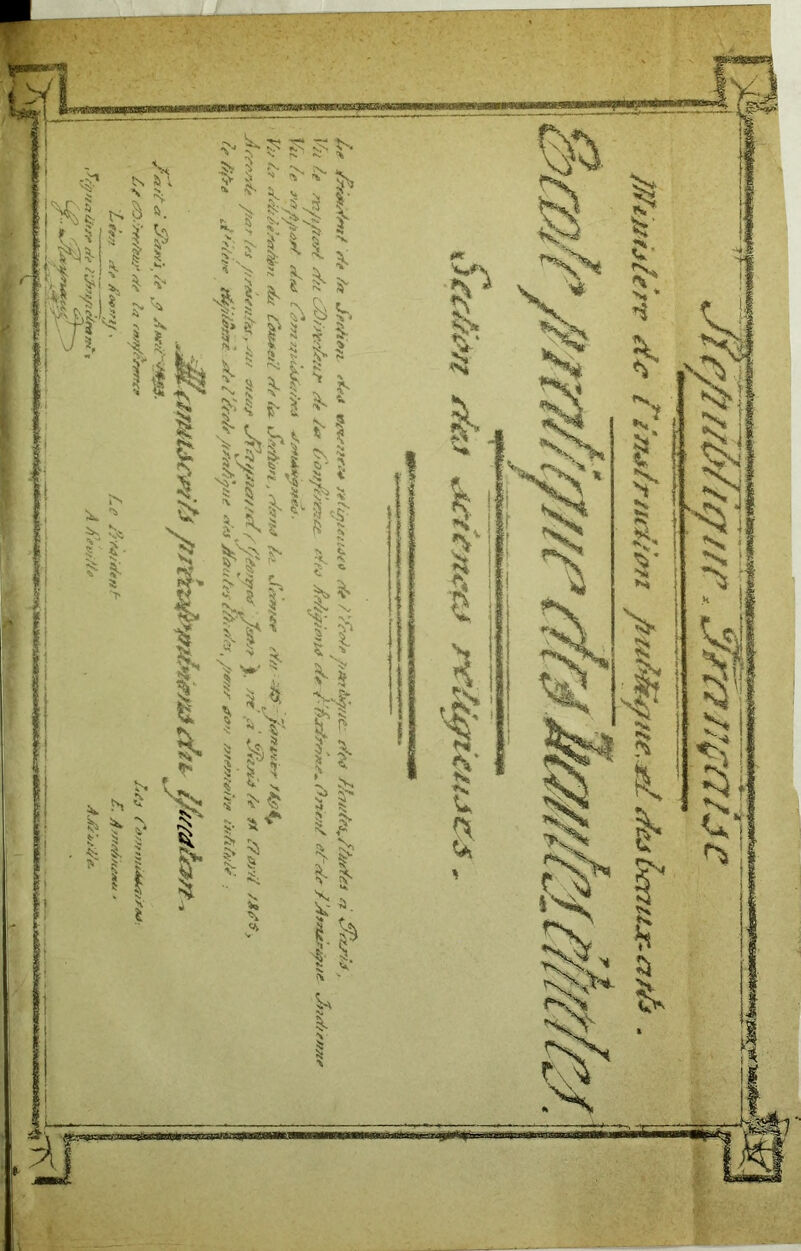 République Française
Ministère de l'instruction publique et des beaux-arts.
Ecole pratique des Hautes études.
Section des sciences religieuses.
Le Président de la Section des sciences religieuses de l'Ecole pratique des Hautes études à Paris,
Vu le rapport du Directeur de la Conférence des Religions de l'Extrême-Orient et de l'Amérique Indienne
Vu le rapport des Commissaires soussignés.
Vu la délibération du Conseil de la Section, dans la Séance du 15 janvier
Accorde par les présentes, au sieur Raynaud (Georges Jean), né à Paris le Avril
le titre d'élève diplômé de l'Ecole pratique des Hautes études, pour son mémoire intitulé :
Manuscrits précolombiens du Yucatan.
Fait à Paris, le
Le Directeur de la conférence
Léon de Rosny.
Le Président
A Réville
Les Commissaires.
E. Amélineau.
A Réville.
Signature de l'Impétrant,
G. Raynaud